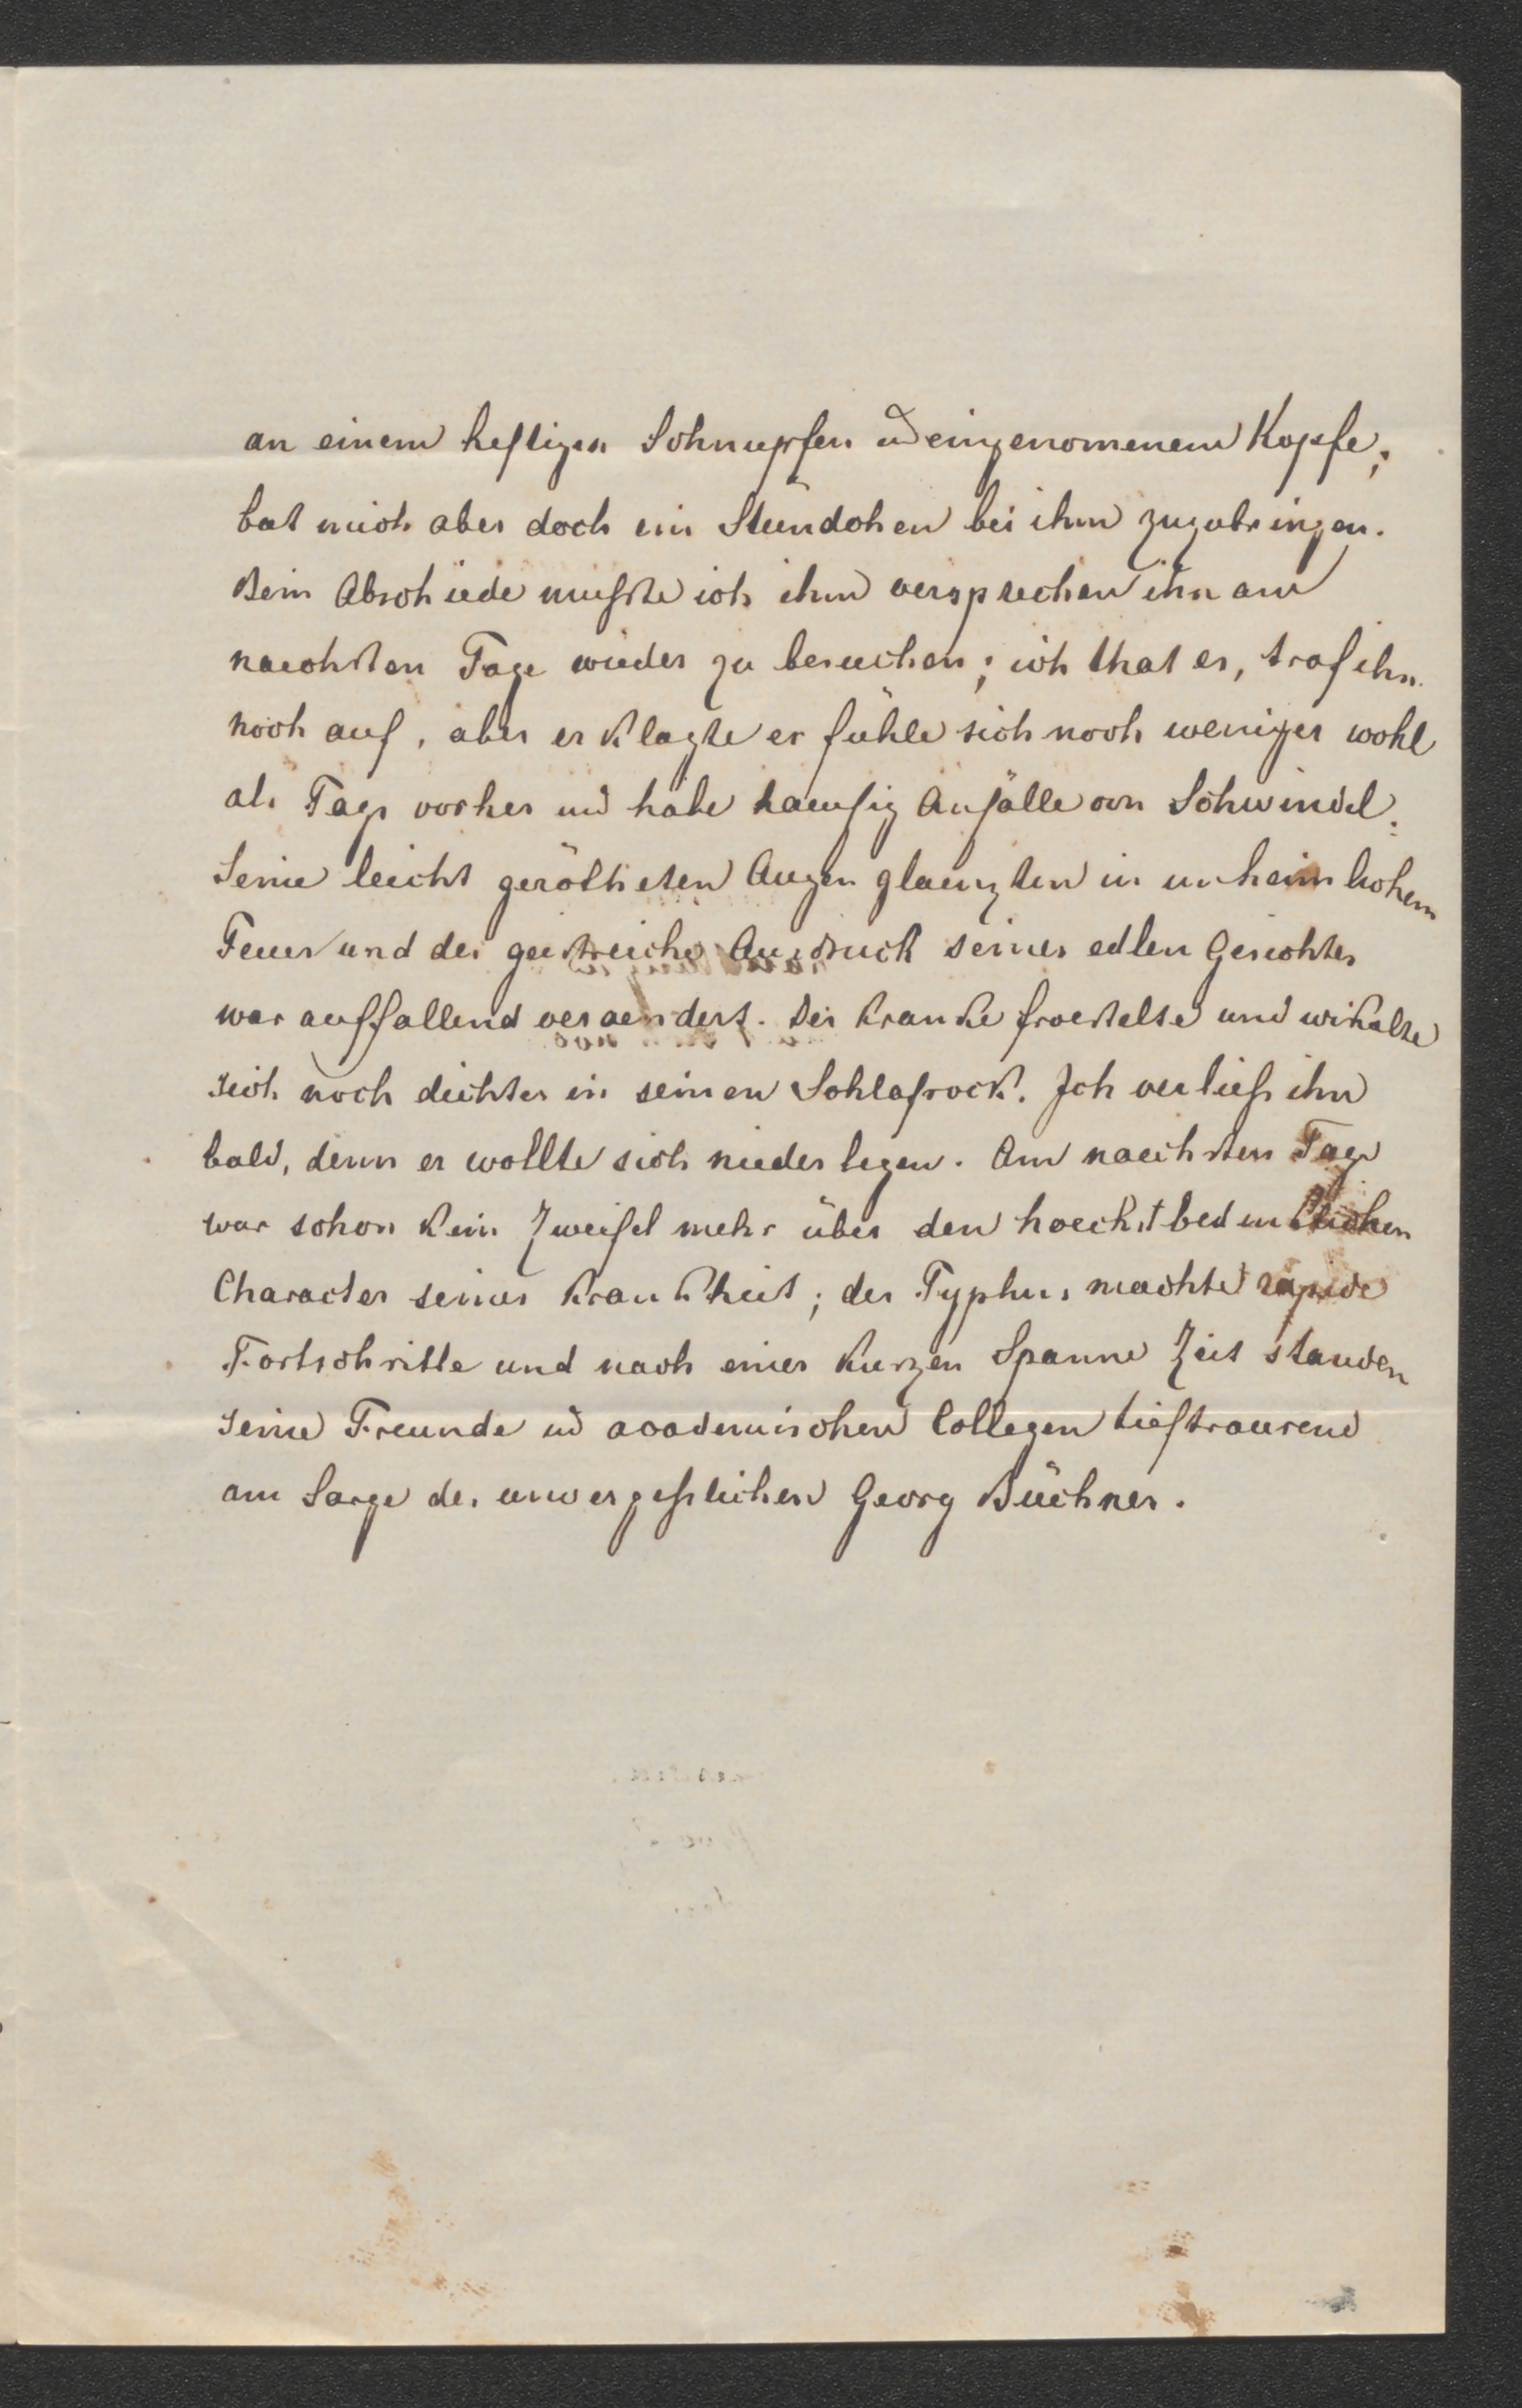 an einem heftigen Schnupfen ud eingenomenem Kopfe,
bat mich aber doch ein Stündchen bei ihm zuzubringen.
Beim Abschiede mußte ich ihm versprechen ihn am
naechsten Tage wieder zu besuchen; ich that es, traf ihn
noch auf, aber er klagte er fühle sich noch weniger wohl
als Tags vorher und habe haeufig Anfälle von Schwindel.
Seine leicht gerötheten Augen glaenzten in unheimlichem
Feuer und der geistreiche Ausdruck seines edlen Gesichtes
war auffallend veraendert. Der Kranke froestelte und wikelte
sich noch dichter in seinen Schlafrock. Ich verließ ihn
bald, denn er wollte sich niederlegen. Am naechsten Tage
war schon kein Zweifel mehr über den hoechst bedenklichen
Character seiner Krankheit; der Typhus machte rapide
Fortschritte und nach einer kurzen Spanne Zeit standen
seine Freunde ud academischen Collegen tieftraurend
am Sarge des unvergeßlichen Georg Büchner.